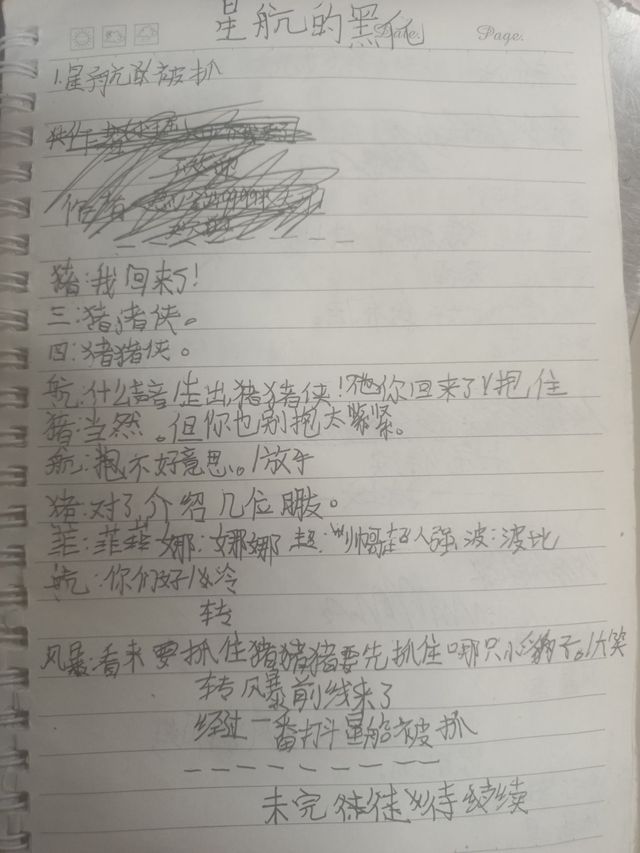 星航的黑化
Date.
Page.
1.星航队被抓
猪:我回来了!
三:猪猪侠。
四:猪猪侠。
航:什么声音/走出猪猪侠!你回来了/抱住
猪:当然。但你也别抱太紧。
航:抱不好意思。/放手
猪:对了,介绍几位朋友。
菲:菲菲 娜:娜娜 超:帅哥超人强,波:波比
航:你们好/冷
转
风暴:看来要抓住猪猪猪要先抓住哪只小豹子。/大笑
转风暴前线来了
经过一番打斗星船被抓
未完待续